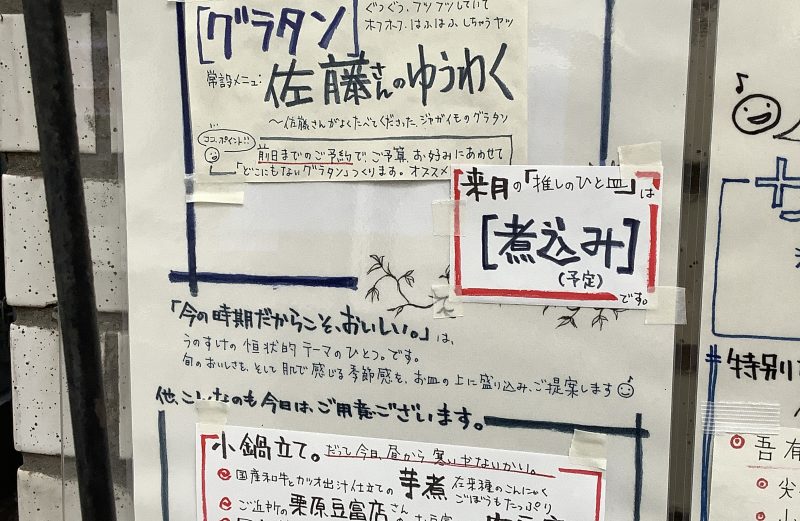 ぐつぐつ、フツフツしていて
ホフホフ、はふはふ、しちゃうヤツ
[グラタン]
常設メニュー:佐藤さんのゆうわく
～佐藤さんがよくたべてくださった、ジャガイモのグラタン
ココ、ポイント!!
前日までのご予約で、ご予算、お好みにあわせて
「どこにもないグラタン」つくります。オススメ
来月の「推しのひと皿」は
[煮込み]
(予定)
です。
「今の時期だからこそ、おいしい。」は、
うのすけの恒状的テーマのひとつ。です。
旬のおいしさを、そして肌で感じる季節感を、お皿の上に盛り込み、ご提案します
他、こんなのも今日は、ご用意ございます。
小鍋立て。だって今日、昼から寒いぢゃないかい。
国産和牛とカツオ出汁仕立ての芋煮 在来種のこんにゃく
ごぼうもたっぷり
ご近所の栗原豆富店さん
特別
吾有
尖